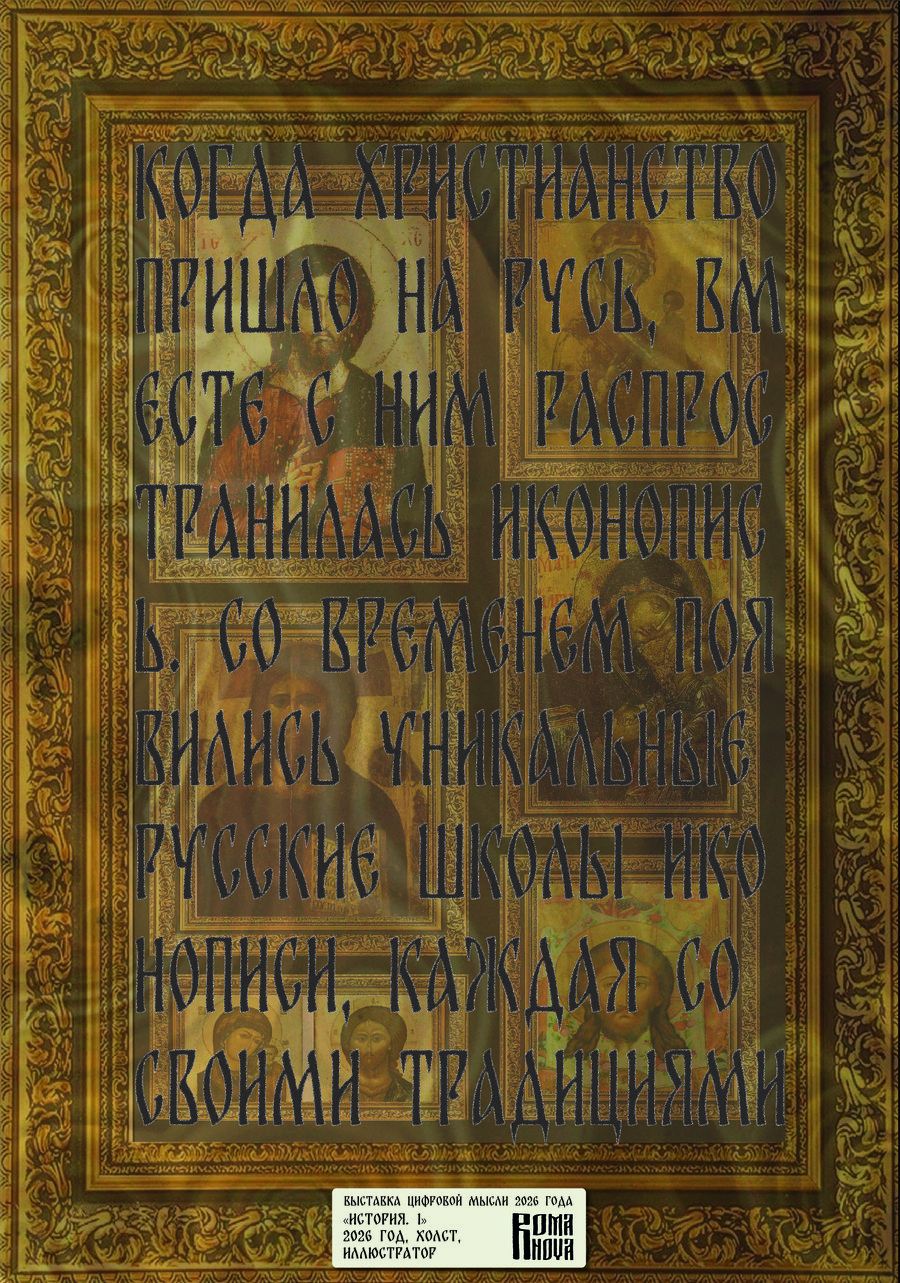 КОГДА ХРИСТИАНСТВО
ПРИШЛО НА РУСЬ, ВМ
ЕСТЕ С НИМ РАСПРОС
ТРАНИЛАСЬ ИКОНОПИС
Ь. СО ВРЕМЕНЕМ ПОЯ
ВИЛИСЬ УНИКАЛЬНЫЕ
РУССКИЕ ШКОЛЫ ИКО
НОПИСИ, КАЖДАЯ СО
СВОИМИ ТРАДИЦИЯМИ
ВЫСТАВКА ЦИФРОВОЙ МЫСЛИ 2026 ГОДА
«ИСТОРИЯ. I»
2026 ГОД, ХОЛСТ,
ИЛЛЮСТРАТОР
ROMA
NOVA